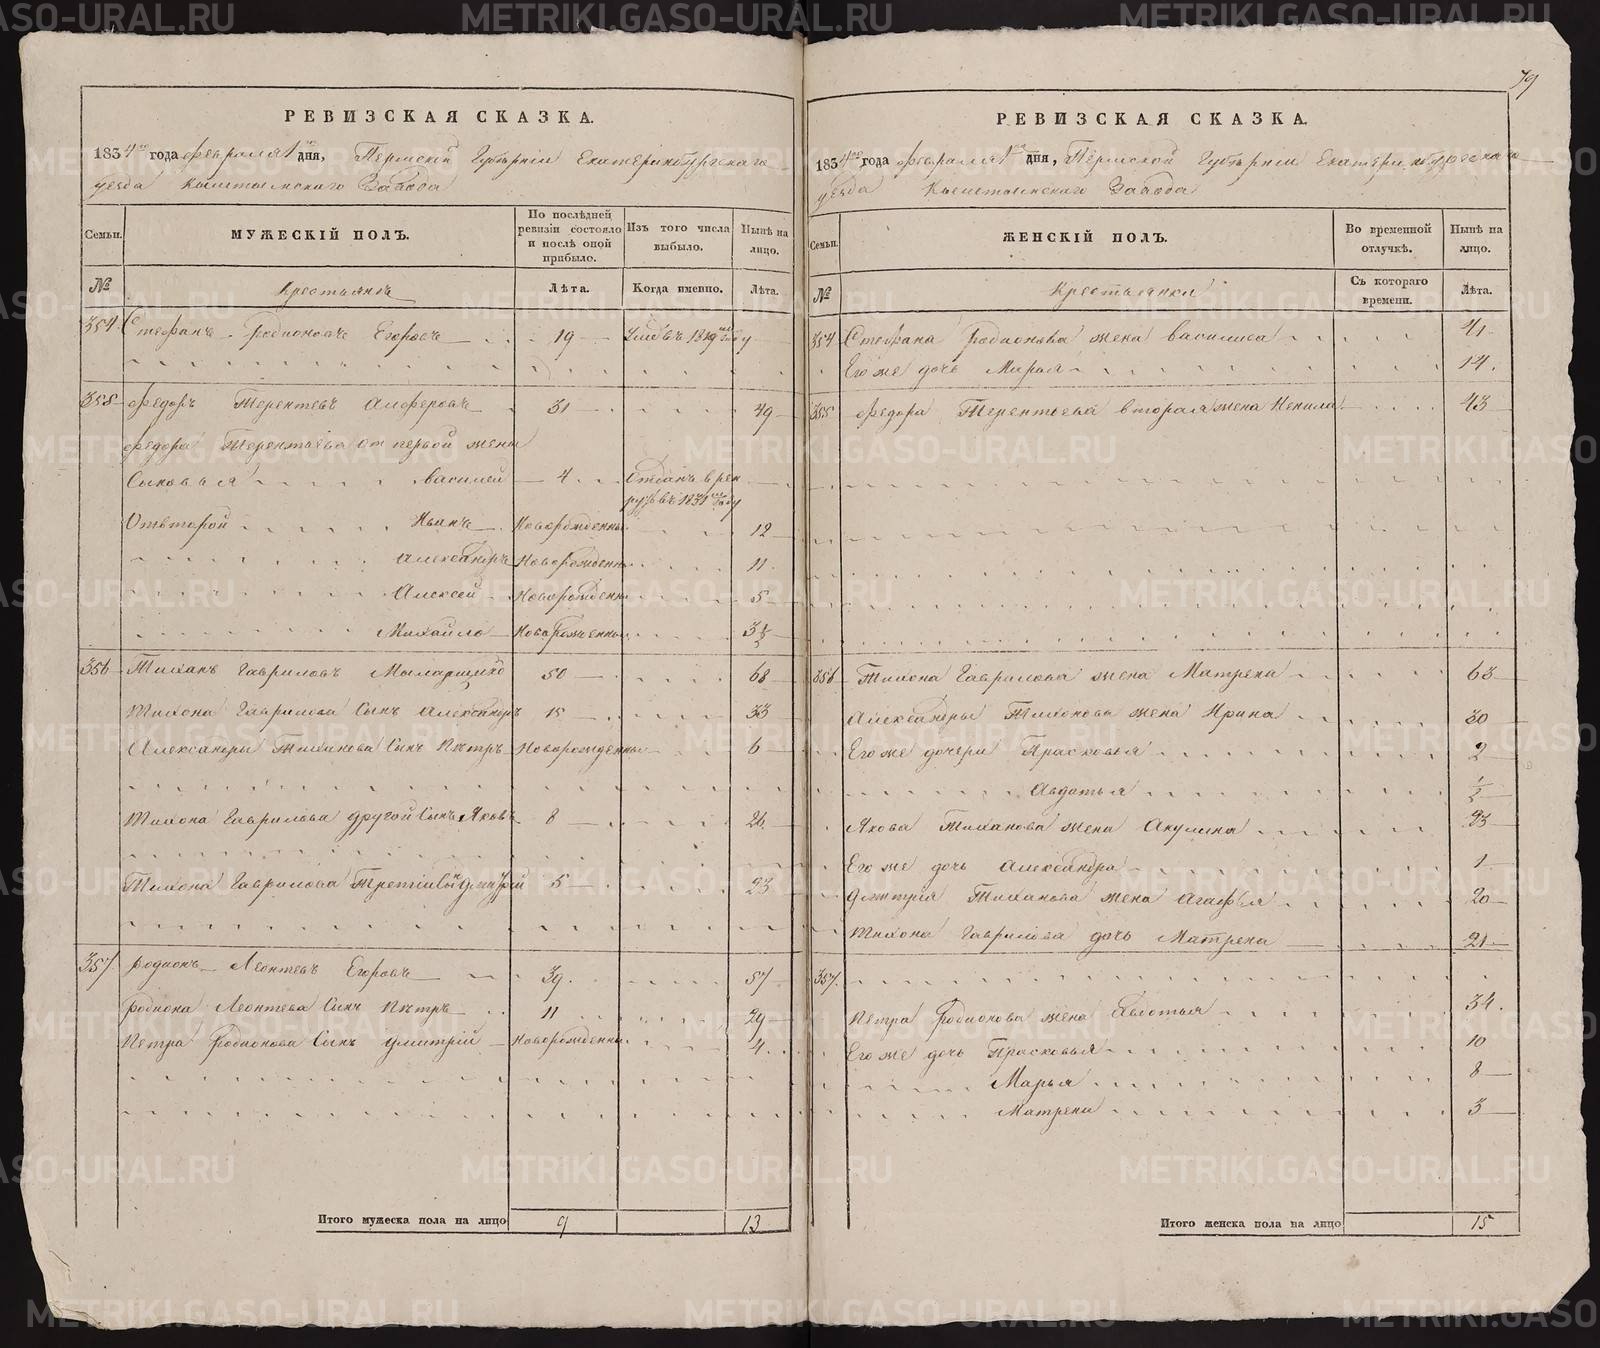 79
РЕВИЗСКАЯ СКАЗКА.
1834го года февраля 1го дня, Пермской Губерніи Екатеринбургскаго
уезда Кыштымскаго Завода
Семьи.
МУЖЕСКІЙ ПОЛЪ.
По послѣдней ревизіи состояло и послѣ оной прибыло.
Изъ того числа выбыло.
Нынѣ на лицо.
№
Крестьянъ
Лѣта.
Когда именно.
Лѣта.
354 Стефанъ Родионовъ Егоровъ 19 Умре въ 1819м году
355 Федоръ Терентевъ Алферовъ 31 49
Федора Терентьева от первой жены
Сыновья Василей 4 Отданъ в рек
руты въ 1831м году
От второй Иванъ Новорожденны 12
Александръ Новорожденны 11
Алексей Новорожденны 5
Михайло Новорожденны 3½
356 Тихонъ Гавриловъ 50 68
Тихона Гаврилова Сынъ Александръ 15 33
Александры Тиханова Сынъ Петръ Новорожденны 6
Тихона Гаврилова другой Сынъ Яковъ 8 26
Тихона Гаврилова Третій Сын Дмитрій 5 23
357 Родионъ Леонтевъ Егоровъ 39 57
Родиона Леонтева Сынъ Петръ 11 29
Петра Родионова Сынъ Дмитрій Новорожденны 4
Итого мужеска пола на лицо 9 13
РЕВИЗСКАЯ СКАЗКА.
1834го года февраля 1го дня, Пермской Губерніи Екатеринбургскаго
уезда Кыштымскаго Завода
Семьи.
ЖЕНСКІЙ ПОЛЪ.
Во временной отлучкѣ.
Нынѣ на лицо.
№
Крестьянки
Съ котораго времени.
Лѣта.
354 Стефана Родионова жена Василиса 41
Его же дочь Марья 14
355 Федора Терентьева вторая жена Ненила 43
356 Тихона Гаврилова жена Матрена 63
Александры Тихонова жена Ирина 30
Его же дочери Прасковья 2
Авдотья ½
Якова Тиханова жена Акулина 23
Его же дочь Александра 1
Дмитрія Тиханова жена Агафья 20
Тихона Гаврилова дочь Матрена 21
357
Петра Родионова жена Авдотья 34
Его же дочь Прасковья 10
Марья 8
Матрена 3
Итого женска пола на лицо 15
METRIKI.GASO-URAL.RU